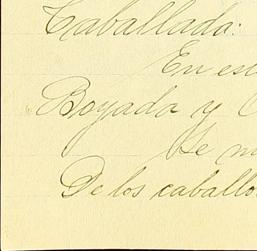 Caballada:
En est
Boyada y
Se m
De los caballo